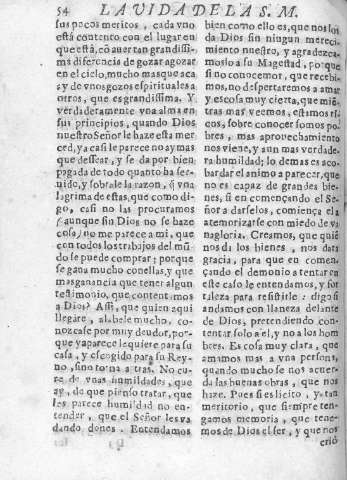 54 LA VIDA DE LA S. M.
sus pocos meritos, cada vno
està contento con el lugar en
que està, cō auer tan grandissi-
ma diferencia de gozar a gozar
en el cielo, mucho mas que aca
ay de vnos gozos espirituales a
otros, que es grandissima. Y
verdaderamente vn alma en
sus principios, quando Dios
nuestro Señor le haze esta mer
ced, ya casi le parece no ay mas
que dessear, y se da por bien
pagada de todo quanto ha ser-
uido, y sobrale la razon, q̃ vna
lagrima de estas, que como di-
go, casi no las procuramos
(aunque sin Dios no se haze
cosa) no me parece a mi, que
con todos los trabajos del mũ-
do se puede comprar; porque
se gana mucho con ellas, y que
mas ganancia que tener algun
testimonio, que contentamos
a Dios? Assi, que quien aqui
llegare, alabele mucho, co-
nozcase por muy deudor, por-
que ya parece le quiere para su
casa, y escogido para su Rey-
no, sino torna a tras. No cu-
re de vnas humildades, que
ay, de que pienso tratar, que
les parece humildad no en-
tender, que el Señor les va
dando dones. Entendamos
bien como ello es, que nos los
da Dios sin ningun mereci-
miento nuestro, y agradezca-
moslo a su Magestad, porque
si no conocemos, que recebi-
mos, no despertaremos a amar
y es cosa muy cierta, que miē-
tras mas veemos, estamos ri-
cos, sobre conocer somos po-
bres, mas aprouechamiento
nos viene, y aun mas verdade-
ra humildad; lo demas es aco-
bardar el animo a parecer, que
no es capaz de grandes bie-
nes, si en començando el Se-
ñor a darselos, comiença el a
atemorizarse con miedo de va
nagloria. Creamos, que quiē
nos da los bienes, nos dara
gracia, para que en comen-
çando el demonio a tentar en
este caso le entendamos, y for
taleza para resistirle: digo si
andamos con llaneza delante
de Dios, pretendiendo con-
tentar solo a el, y no a los hom
bres. Es cosa muy clara, que
amamos mas a vna persona,
quando mucho se nos acuer-
da las buenas obras, que nos
haze. Pues si es licito, y tan
meritorio, que siempre ten-
gamos memoria, que tene-
mos de Dios el ser, y que nos
criò